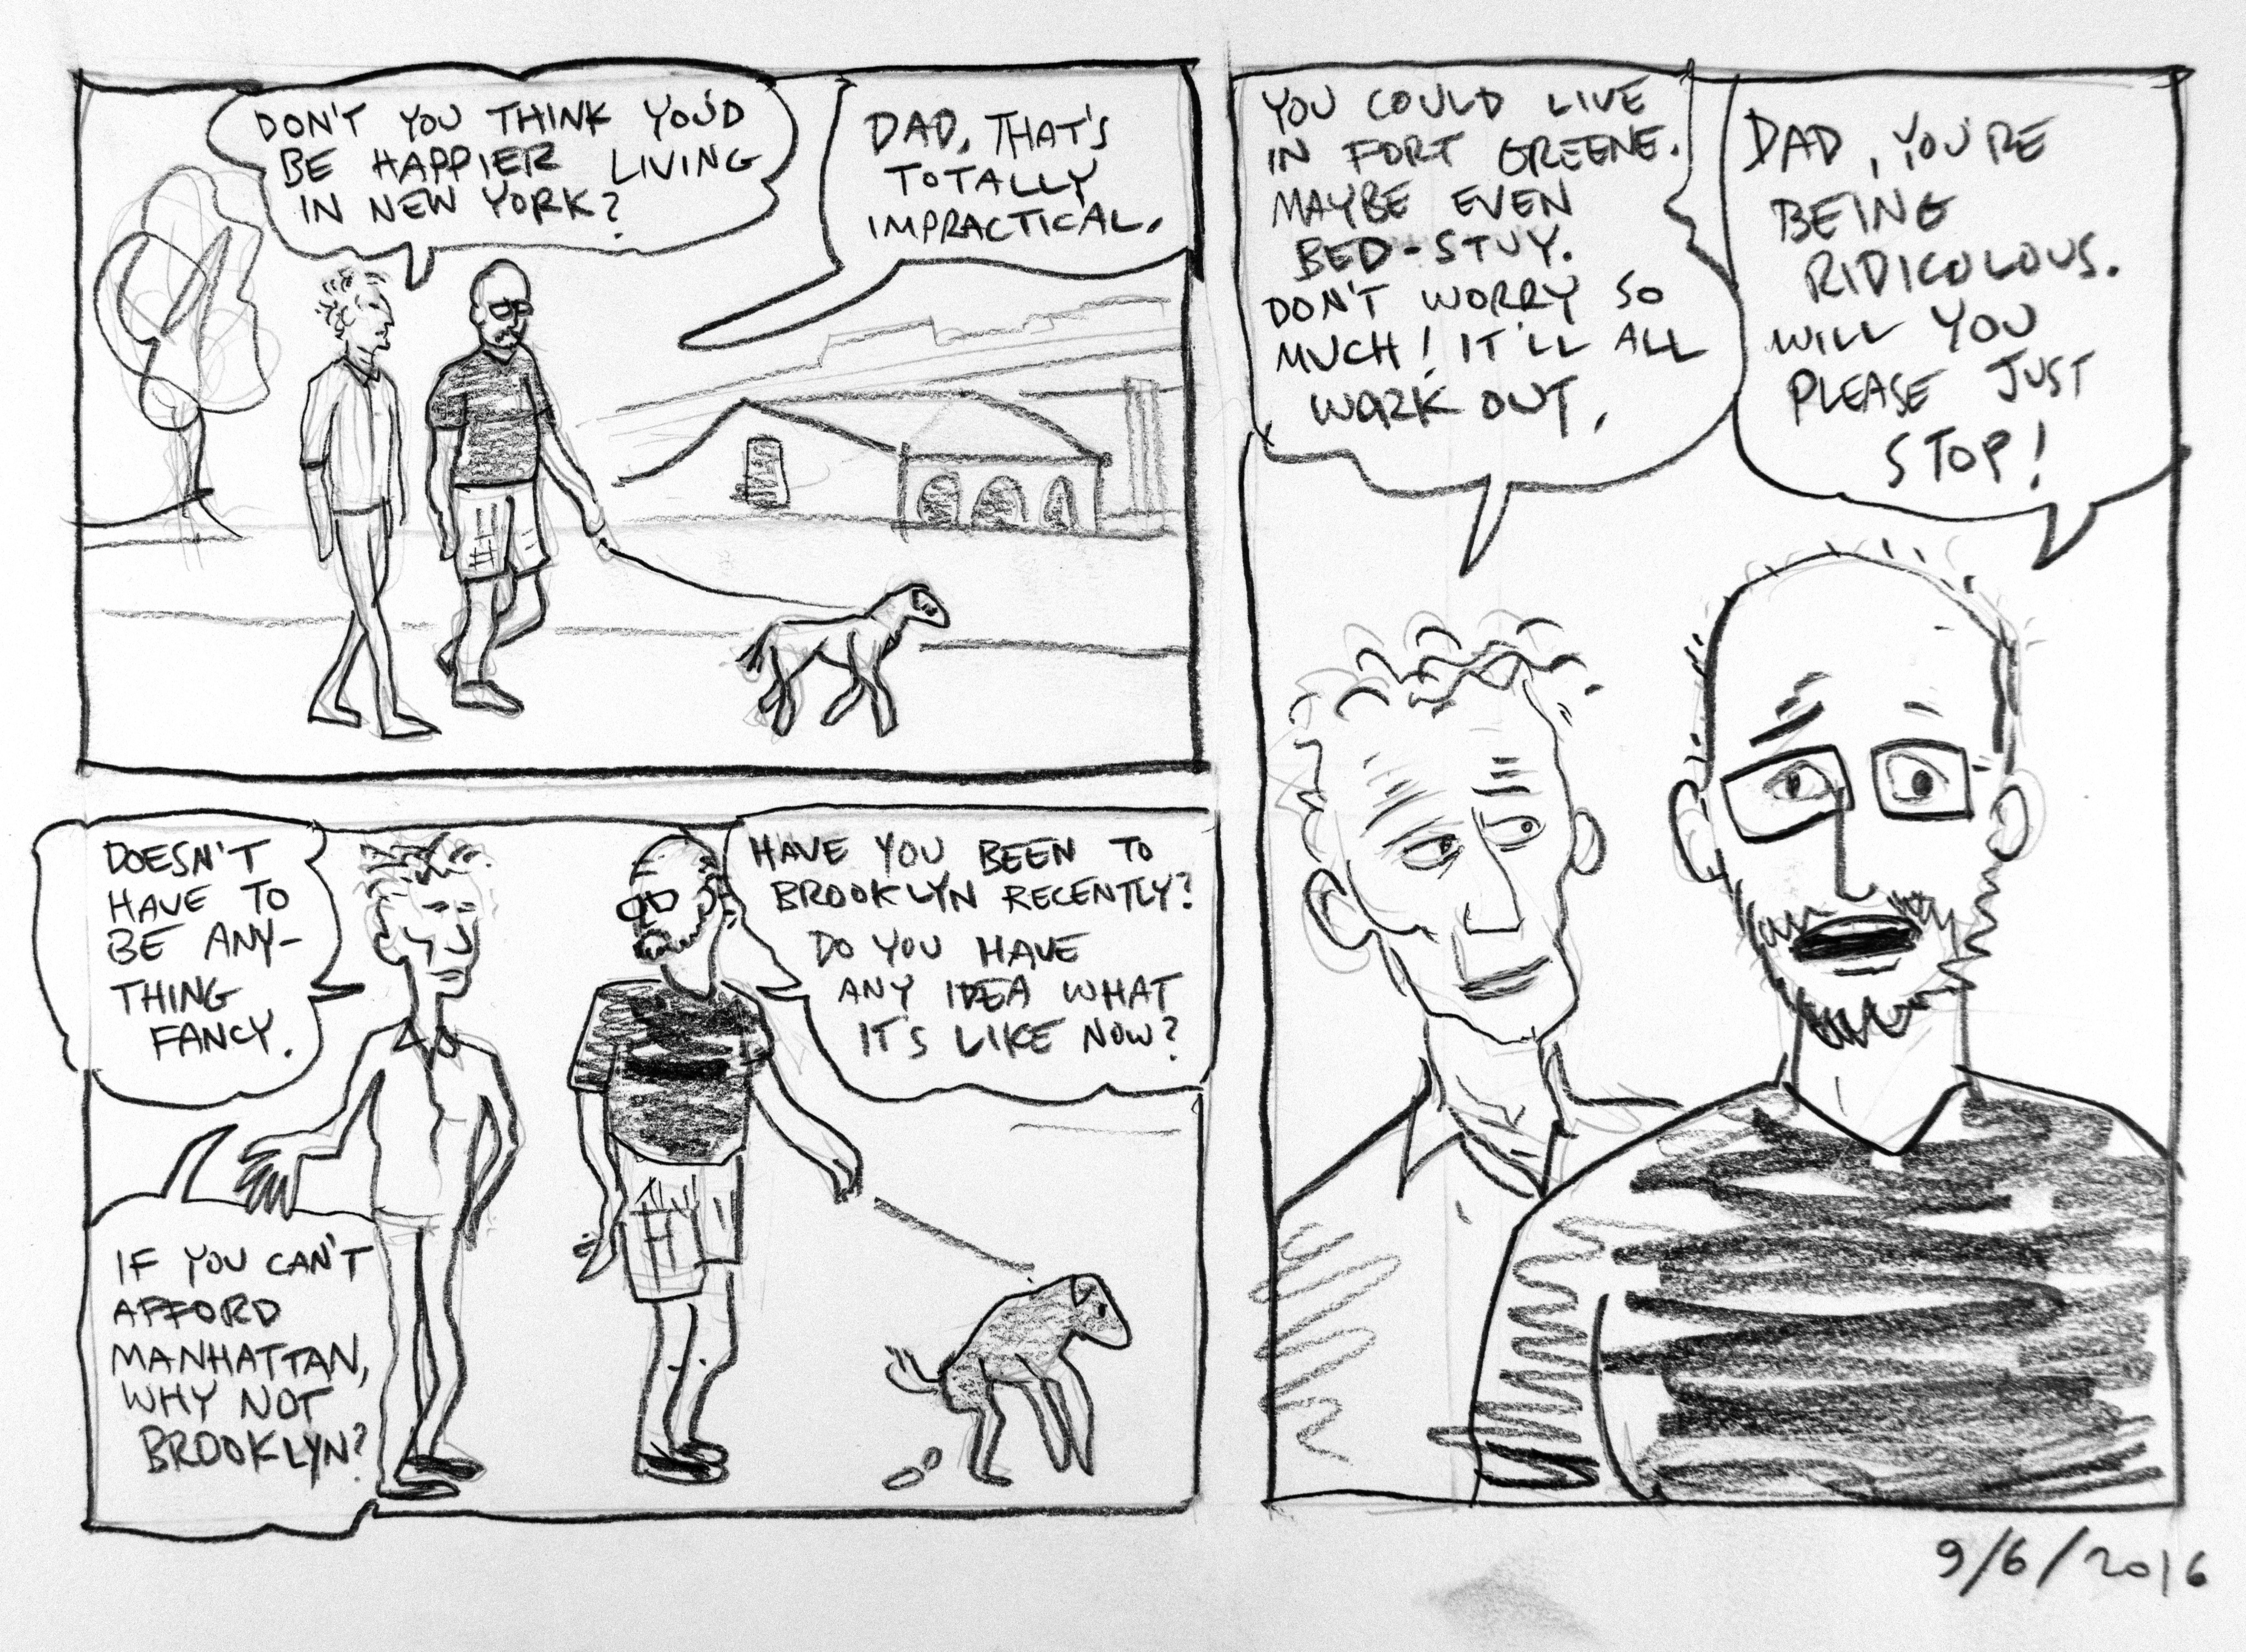 DON'T YOU THINK YOU'D
BE HAPPIER LIVING
IN NEW YORK?
DAD, THAT'S
TOTALLY
IMPRACTICAL.
DOESN'T
HAVE TO
BE ANY-
THING
FANCY.
IF YOU CAN'T
AFFORD
MANHATTAN,
WHY NOT
BROOKLYN?
HAVE YOU BEEN TO
BROOKLYN RECENTLY?
DO YOU HAVE
ANY IDEA WHAT
IT'S LIKE NOW?
YOU COULD LIVE
IN FORT GREENE.
MAYBE EVEN
BED-STUY.
DON'T WORRY SO
MUCH! IT'LL ALL
WORK OUT.
DAD, YOU'RE
BEING
RIDICULOUS.
WILL YOU
PLEASE JUST
STOP!
9/6/2016